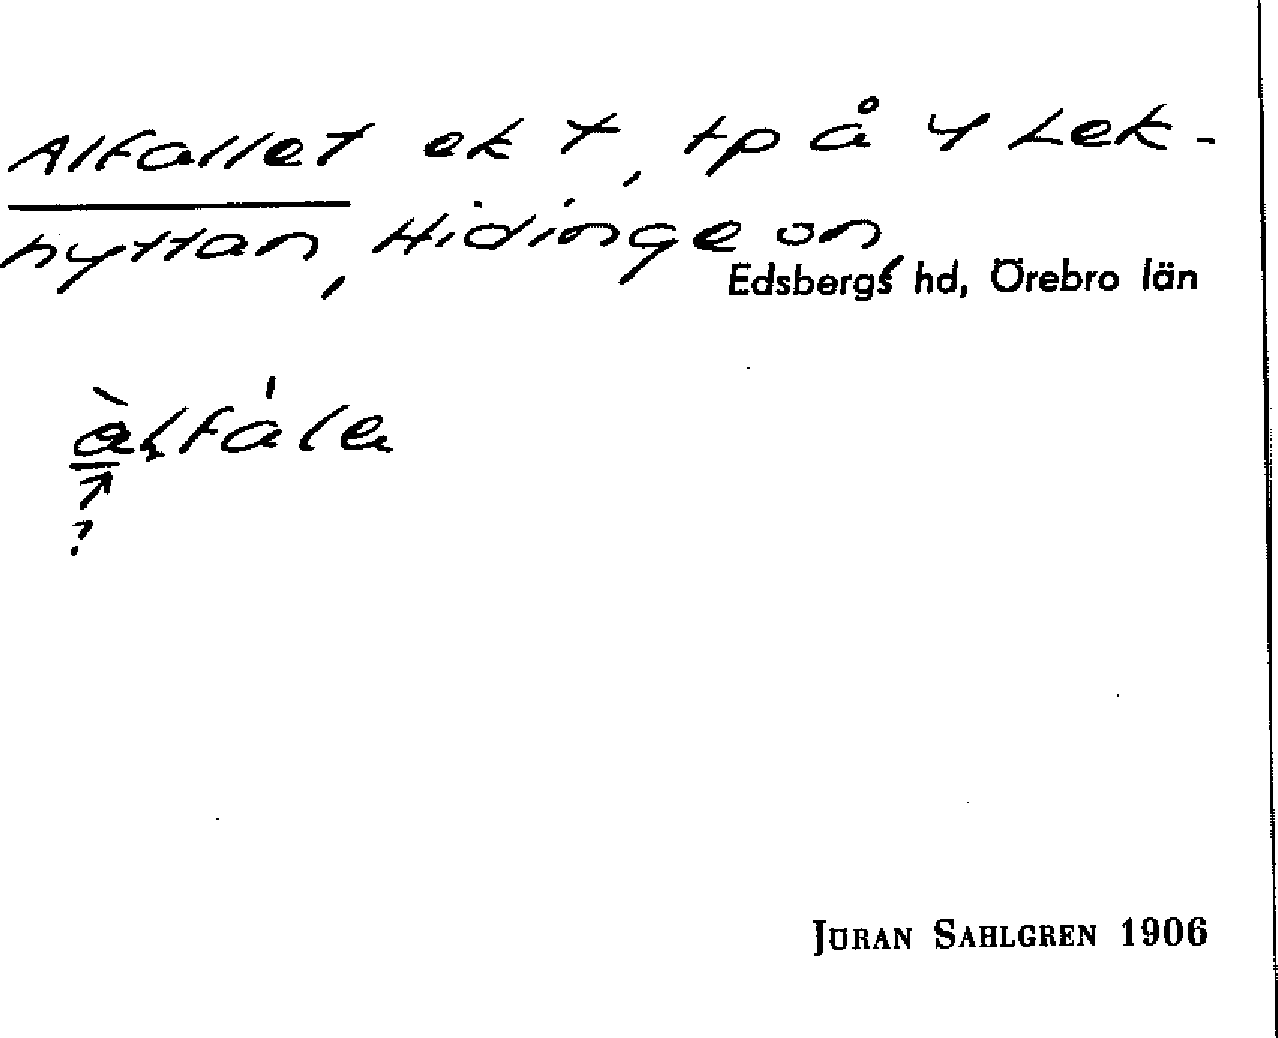 Alfallet ek t, tp å 4 Lek-
hyttan, Hidinge sn
Edsbergs hd, Örebro län
àlfála
?
JÖRAN SAHLGREN 1906